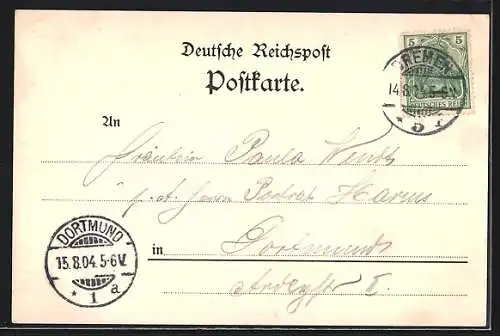 Deutsche Reichspost
Postkarte.
5 5
DEUTSCHES REICH
BREMEN
14.8.04.5-6N
* 5 *
An
Fräulein Paula Wendt
Herrn Harms
DORTMUND
15.8.04.5-6V.
* 1 a
in Dortmund